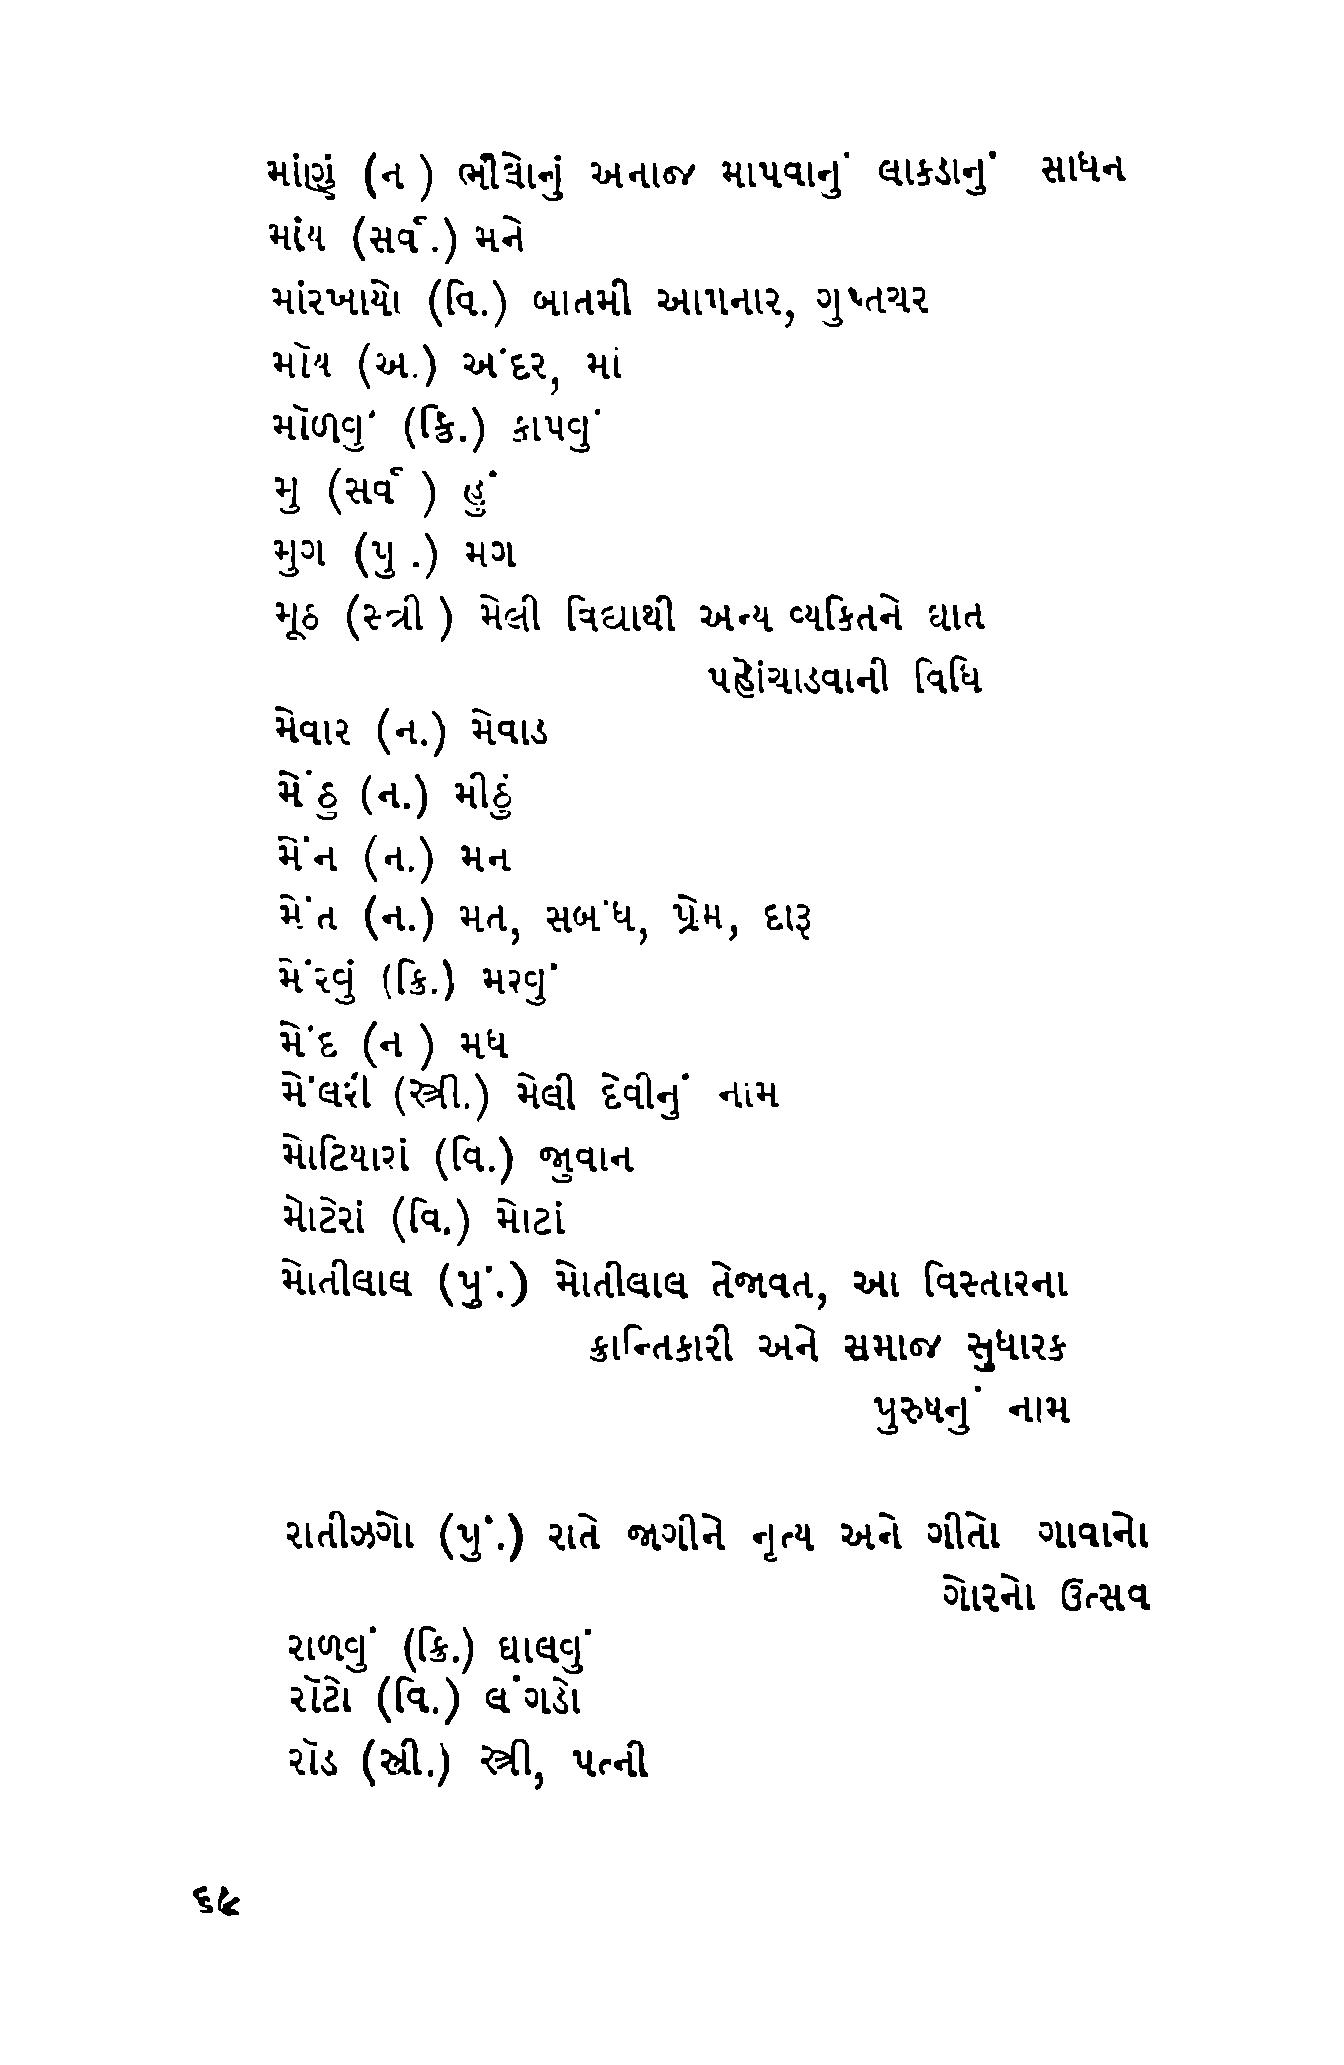 માંણું (ન ) ભીલોનું અનાજ માપવાનું લાકડાનું સાધન
માંય (સર્વ.) મને
માંરખાયો (વિ.) બાતમી આપનાર, ગુપ્તચર
મૉય (અ.) અંદર, માં
મૉળવું (ક્રિ.) કાપવું
મુ (સર્વ ) હું
મુગ (પુ .) મગ
મૂઠ (સ્ત્રી ) મેલી વિદ્યાથી અન્ય વ્યક્તિને ઘાત
પહોંચાડવાની વિધિ
મેવાર (ન.) મેવાડ
મેંઠુ (ન.) મીઠું
મેંન (ન.) મન
મેંત (ન.) મત, સબંધ, પ્રેમ, દારૂ
મેંરવું (ક્રિ.) મરવું
મેંદ (ન ) મધ
મેંલરી (સ્ત્રી.) મેલી દેવીનું નામ
મોટિયારાં (વિ.) જુવાન
મોટેરાં (વિ.) મોટાં
મોતીલાલ (પું.) મોતીલાલ તેજાવત, આ વિસ્તારના
ક્રાન્તિકારી અને સમાજ સુધારક
પુરુષનું નામ
રાતીઝગો (પું.) રાતે જાગીને નૃત્ય અને ગીતો ગાવાનો
ગોરનો ઉત્સવ
રાળવું (ક્રિ.) ઘાલવું
રૉટો (વિ.) લંગડો
રૉડ (સ્ત્રી.) સ્ત્રી, પત્ની